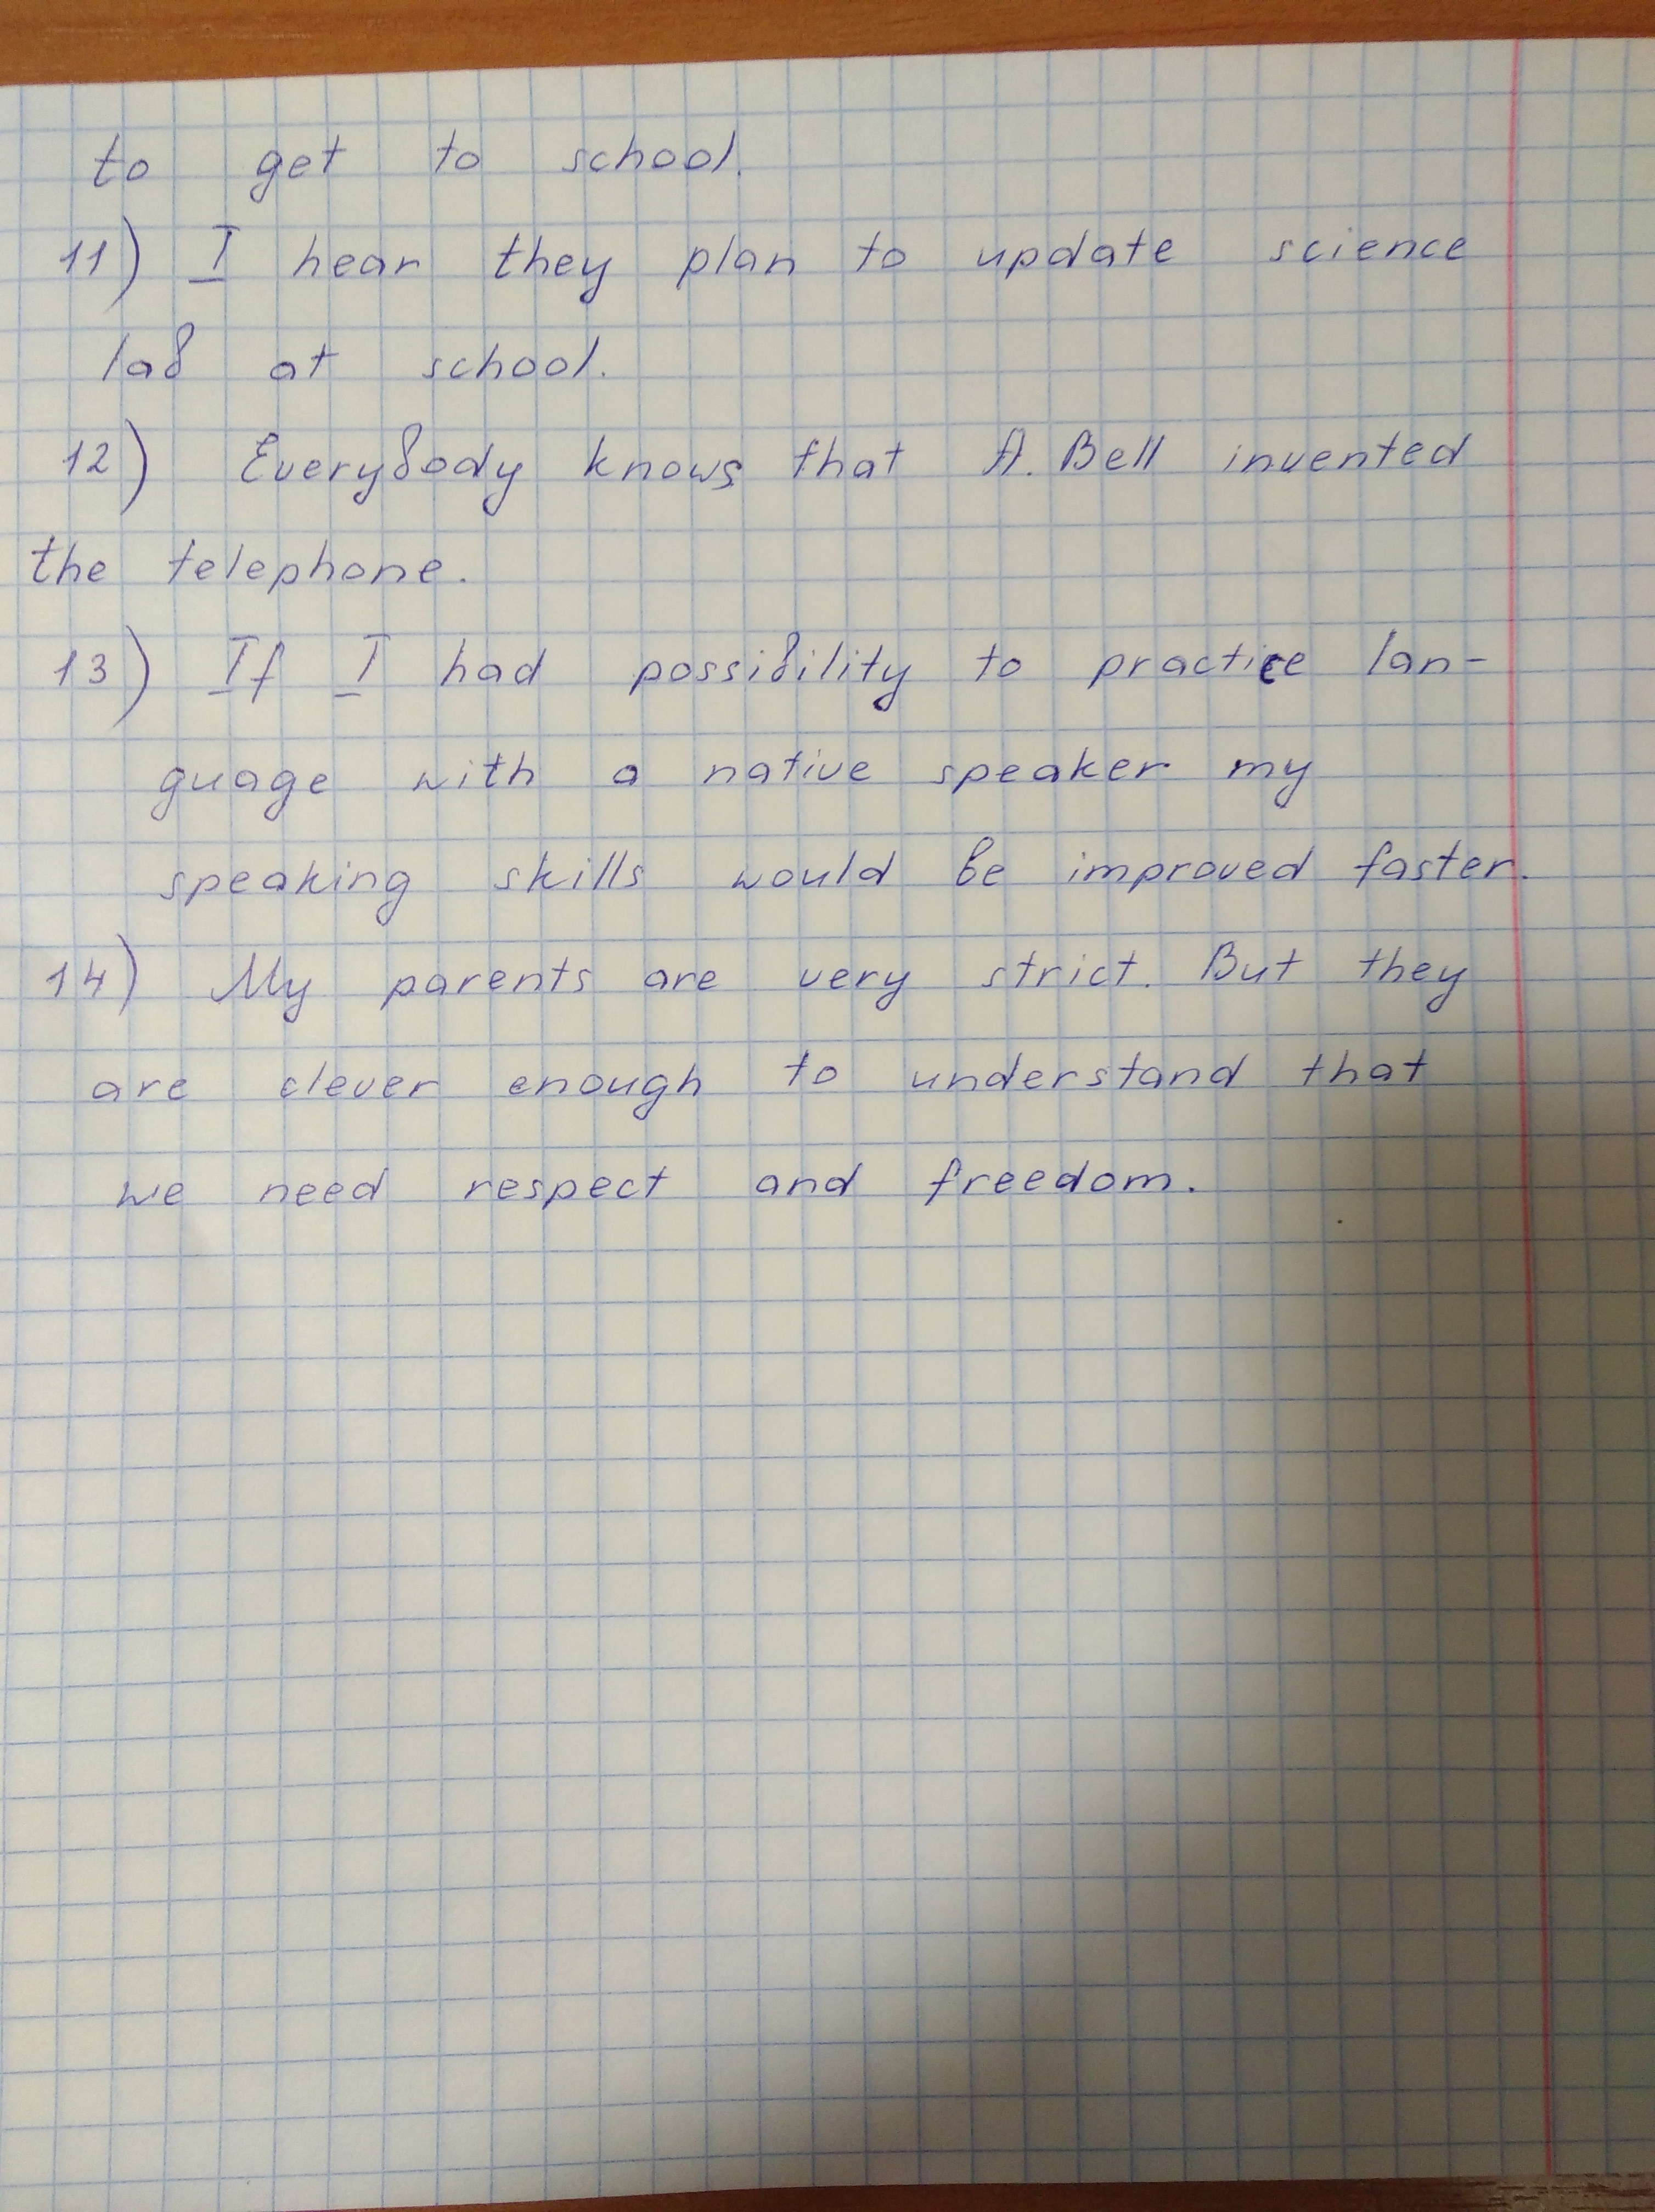 to get to school.
11) I hear they plan to update science
lab at school.
12) Everybody knows that A. Bell invented
the telephone.
13) If I had possibility to practice lan-
guage with a native speaker my
speaking skills would be improved faster.
14) My parents are very strict. But they
are clever enough to understand that
we need respect and freedom.